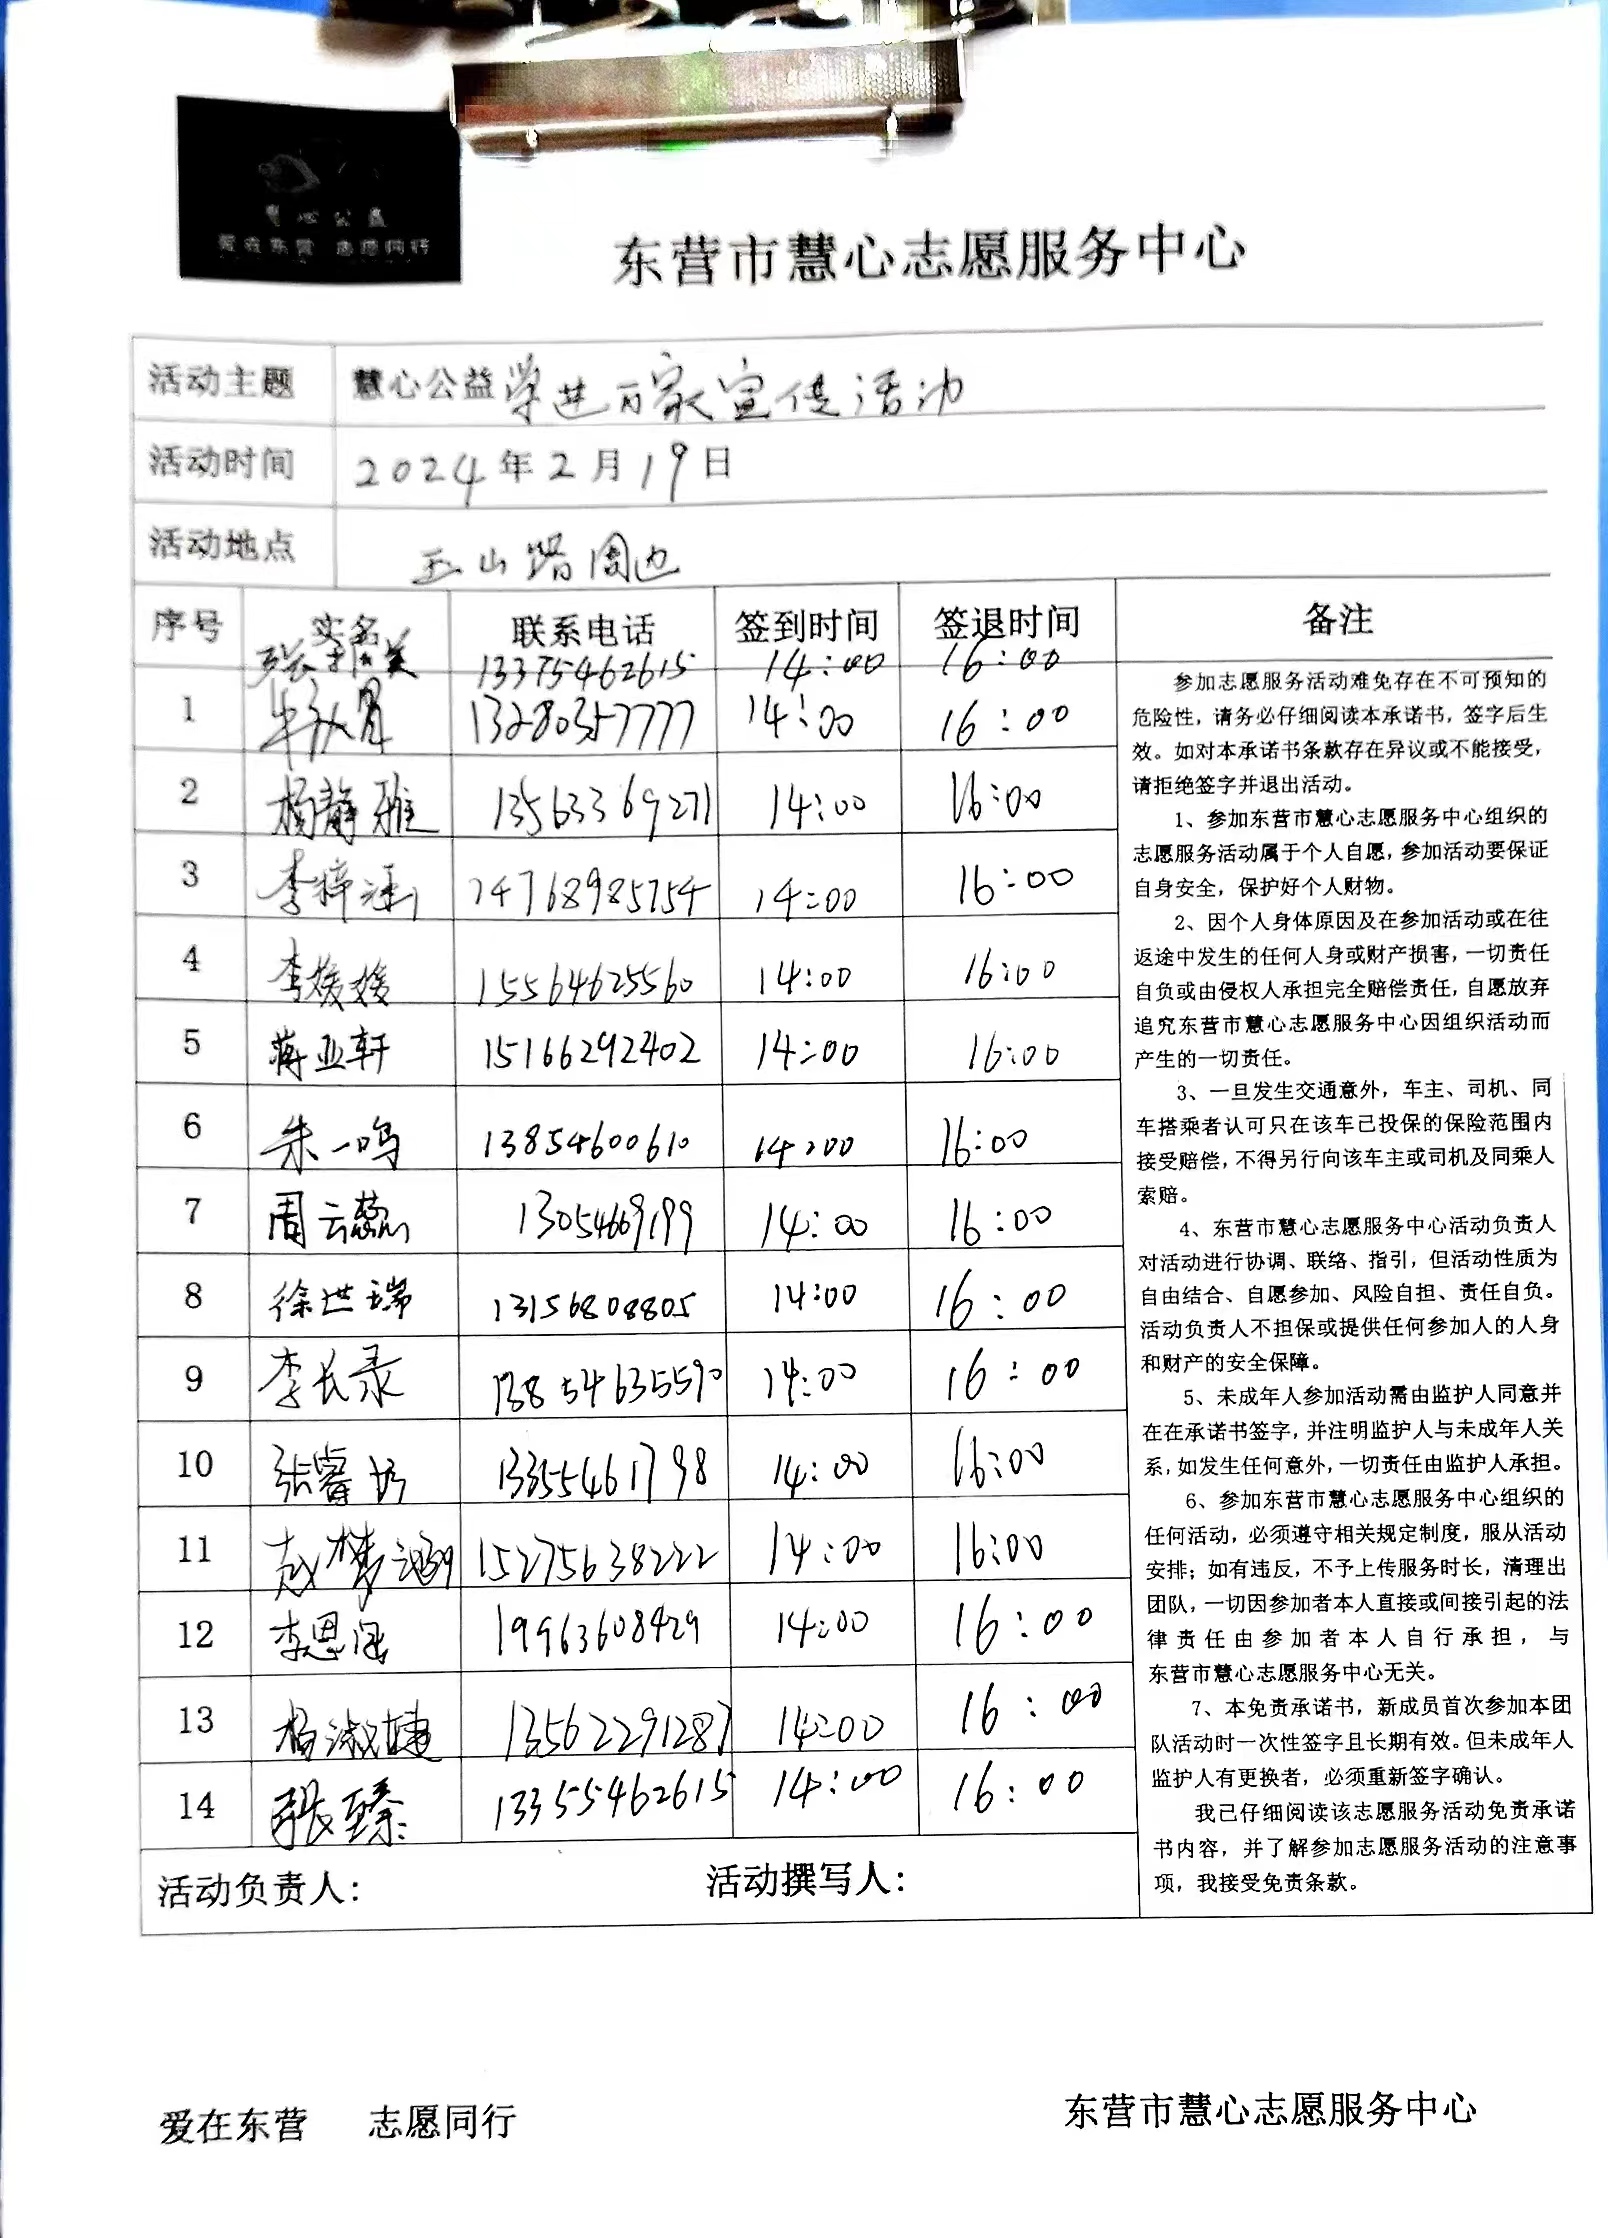 慧心公益
爱在东营 志愿同行
东营市慧心志愿服务中心
活动主题 慧心公益 进百家宣传活动
活动时间 2024年2月19日
活动地点 玉山路周边
序号 实名 联系电话 签到时间 签退时间 备注
张 美 13375462615 14:00 16:00
1 牛 13280357777 14:00 16:00
2 杨静雅 13563369271 14:00 16:00
3 李梓涵 14768985754 14:00 16:00
4 李媛媛 15564625560 14:00 16:00
5 蒋亚轩 15166292402 14:00 16:00
6 朱一鸣 13854600610 14:00 16:00
7 周云蕊 13054669199 14:00 16:00
8 徐世瑞 13156808805 14:00 16:00
9 李长录 13854635590 14:00 16:00
10 张睿 13355461798 14:00 16:00
11 赵梦涵 15275638222 14:00 16:00
12 李恩涵 19963608429 14:00 16:00
13 杨淑婕 13562291287 14:00 16:00
14 张臻 13355462615 14:00 16:00
参加志愿服务活动难免存在不可预知的
危险性，请务必仔细阅读本承诺书，签字后生
效。如对本承诺书条款存在异议或不能接受，
请拒绝签字并退出活动。
1、参加东营市慧心志愿服务中心组织的
志愿服务活动属于个人自愿，参加活动要保证
自身安全，保护好个人财物。
2、因个人身体原因及在参加活动或在往
返途中发生的任何人身或财产损害，一切责任
自负或由侵权人承担完全赔偿责任，自愿放弃
追究东营市慧心志愿服务中心因组织活动而
产生的一切责任。
3、一旦发生交通意外，车主、司机、同
车搭乘者认可只在该车已投保的保险范围内
接受赔偿，不得另行向该车主或司机及同乘人
索赔。
4、东营市慧心志愿服务中心活动负责人
对活动进行协调、联络、指引，但活动性质为
自由结合、自愿参加、风险自担、责任自负。
活动负责人不担保或提供任何参加人的人身
和财产的安全保障。
5、未成年人参加活动需由监护人同意并
在在承诺书签字，并注明监护人与未成年人关
系，如发生任何意外，一切责任由监护人承担。
6、参加东营市慧心志愿服务中心组织的
任何活动，必须遵守相关规定制度，服从活动
安排；如有违反，不予上传服务时长，清理出
团队，一切因参加者本人直接或间接引起的法
律责任由参加者本人自行承担，与
东营市慧心志愿服务中心无关。
7、本免责承诺书，新成员首次参加本团
队活动时一次性签字且长期有效。但未成年人
监护人有更换者，必须重新签字确认。
我已仔细阅读该志愿服务活动免责承诺
书内容，并了解参加志愿服务活动的注意事
项，我接受免责条款。
活动负责人： 活动撰写人：
爱在东营 志愿同行 东营市慧心志愿服务中心